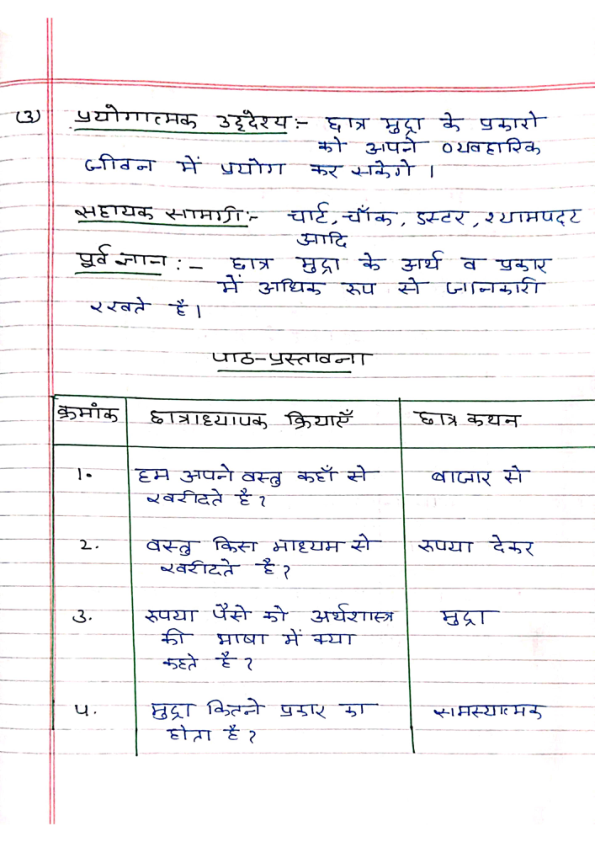 (3) प्रयोगात्मक उद्देश्य:- छात्र मुद्रा के प्रकारो
को अपने व्यवहारिक
जीवन में प्रयोग कर सकेगे।
सहायक सामाग्री:- चार्ट, चाँक, डस्टर, श्यामपट्ट
आदि
पूर्व ज्ञान:- छात्र मुद्रा के अर्थ व प्रकार
में अधिक रूप से जानकारी
रखते है।
पाठ-प्रस्तावना
क्रमांक छात्राध्यापक क्रियाएँ छात्र कथन
1. हम अपने वस्तु कहाँ से बाजार से
खरीदते है?
2. वस्तु किस माध्यम से रूपया देकर
खरीदते है?
3. रूपया पैसे को अर्थशास्त्र मुद्रा
की भाषा में क्या
कहते है?
4. मुद्रा कितने प्रकार का समस्यात्मक
होता है?